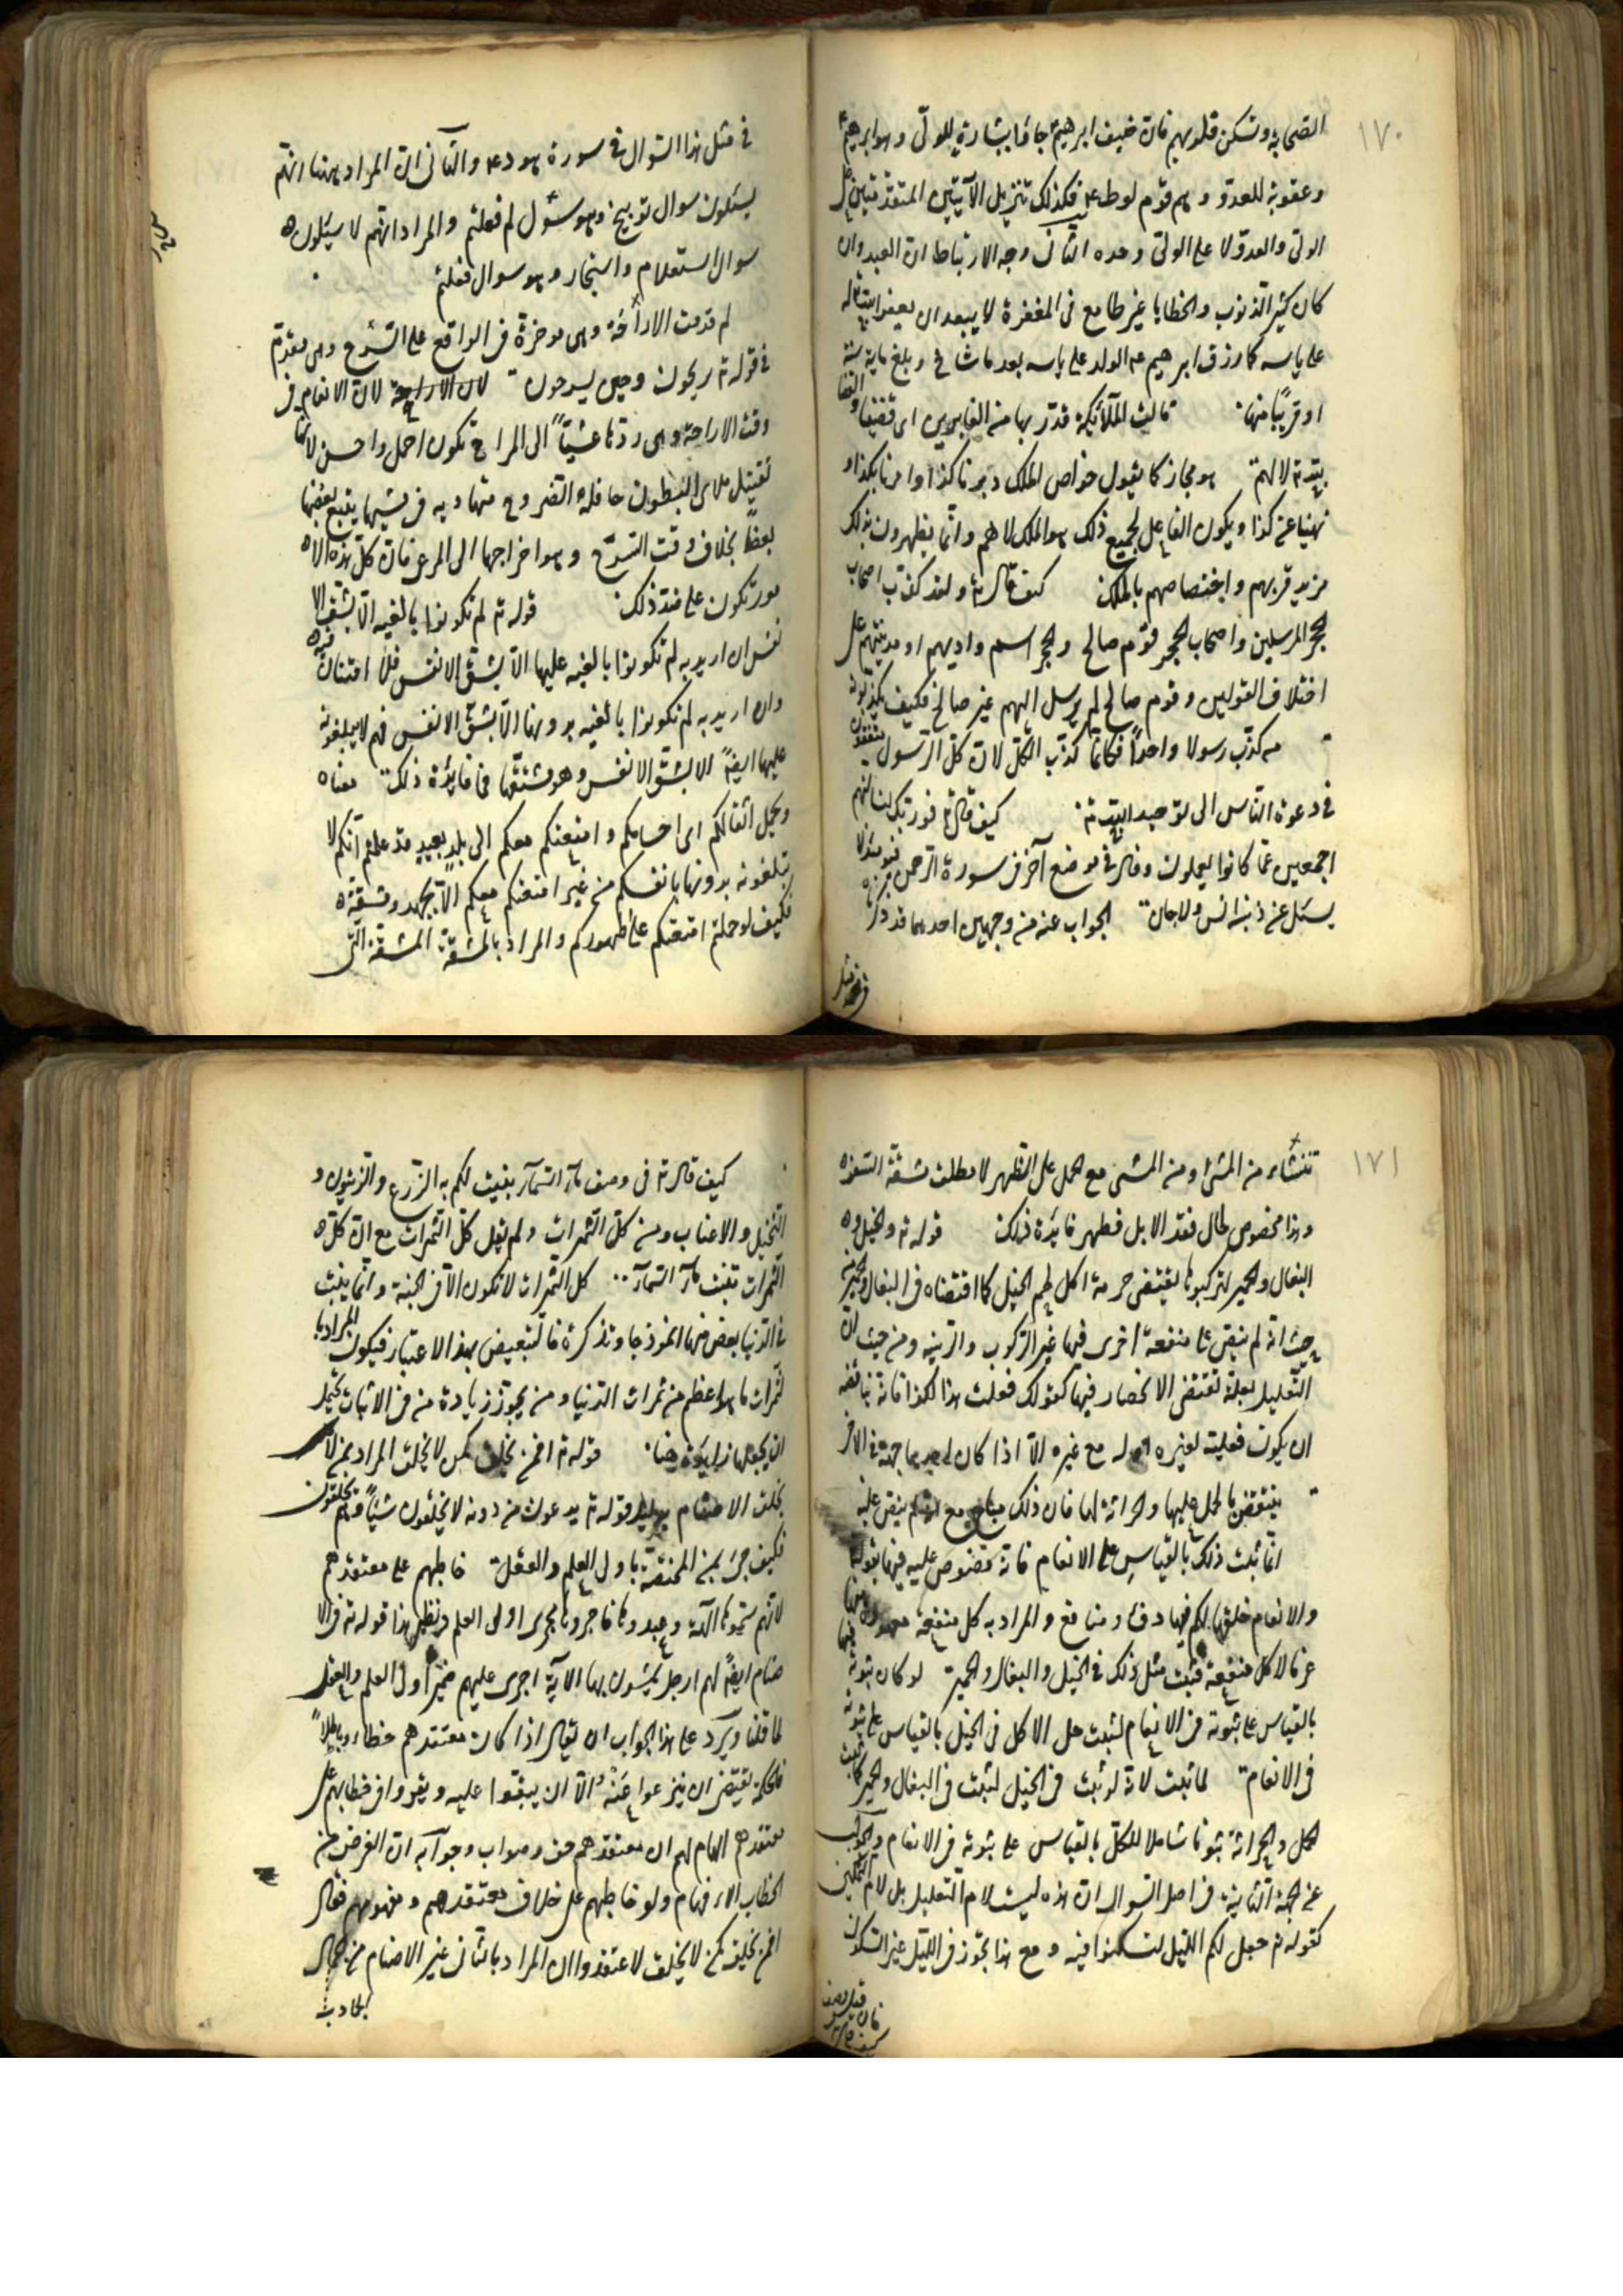 ١٧٠
الصحابة وتسكن قلوبهم فان ضيف ابرهيم جاؤا ببشارة للولى وهو ابرهيم
وعقوبة للعدو وهم قوم لوط ع فكذلك تنزيل الآيتين المتقدمتين على
الولى والعدو لا على الولى وحده الثانى وجه الارتباط ان العبد وان
كان كثير الذنوب والخطايا غير طامع فى المغفرة لا يبعد ان يغفر الله تع له
على ياسه كما رزق ابرهيم ع الولد على ياسه بعد ما شاخ وبلغ ماية سنة
او قريبًا منها قالت الملآئكة قدر بها من الغابرين اى قضينا والقضا
لله تع لا لهم هو مجاز كما يقول خواص الملك دبرنا كذا وامرنا بكذا و
نهينا عن كذا ويكون الفاعل لجميع ذلك هو الملك لا هم وانما يظهرون بذلك
مزيد قربهم واختصاصهم بالملك كيف قال تع ولقد كذب اصحاب
الحجر المرسلين واصحاب الحجر قوم صالح والحجر اسم واديهم او مدينتهم على
اختلاف القولين وقوم صالح لم يرسل اليهم غير صالح فكيف يكذبون
من كذب رسولا واحدًا فكانما كذب الكل لان كل الرسول متفقون
فى دعوة الناس الى توحيد الله تع كيف قال تع فوربك لنسالنهم
اجمعين عما كانوا يعملون وقال فى موضع آخر فى سورة الرحمن فيومئذ لا
يسئل عن ذنبه انس ولا جان الجواب عنه من وجهين احدهما قد ذكرناه
فى مثل
فى مثل هذا السوال فى سورة هود ع والثانى ان المراد ههنا انهم
يسئلون سوال توبيخ وهو سؤل لم فعلتم والمراد انهم لا يسئلون
سوال استعلام واستخبار وهو سوال فعلتم
لم قدمت الاراحة وهى موخرة فى الواقع على السرح وهى مقدم
فى قوله تع تريحون وحين يسرحون لان الاراحة لان الانعام فى
وقت الاراحة وهى ردها عشيًا الى المراح تكون اجمل واحسن لانها
تقبل ملاى البطون حافلة الضروع متهاديه فى مشيها يتبع بعضها
بعضًا بخلاف وقت السرح وهو اخراجها الى المرعى فان كل هذه الا
مور تكون على ضد ذلك قوله تع لم تكونوا بالغيه الا بشق الا
نفس ان اريد به لم تكونوا بالغيه عليها الا بشق الانفس فلا امتنان فيه
وان اريد به لم تكونوا بالغيه بدونها الا بشق الانفس فهم لا يبلغونه
عليها ايضًا الا بشق الانفس وهو مشقتها فما فايدة ذلك معناه
وتحمل اثقالكم اى احمالكم وامتعتكم معكم الى بلد بعيد قد علمتم انكم لا
تبلغونه بدونها بانفسكم من غير امتعتكم معكم الا بجهد ومشقة
فكيف لو حملتم امتعتكم على ظهوركم والمراد بالمشقة المشقة التى
١٧١
تنشأء من المشى او من المشى مع الحمل على الظهر لا مطلق مشقة السفر
وهذا مخصوص بحال فقد الابل فظهر فايدة ذلك قوله تع والخيل و
البغال والحمير لتركبوها يقتضى حرمة اكل لحم الخيل كما اقتضاه فى البغال والحمير من
حيث انه لم ينص على منفعة اخرى فيها غير الركوب والزينه ومن حيث ان
التعليل بعلة تقتضى الانحصار فيها كقولك فعلت هذا لكذا فانه يناقضه
ان يكون فعلته لغيره او له مع غيره الا اذا كان احدهما جهة فى الاخر
ينتقض بالحمل عليها والحراثة لها فان ذلك مباح مع انه لم ينص عليه
انما ثبت ذلك بالقياس على الانعام فانه منصوص عليه فيها بقوله
والانعام خلقها لكم فيها دفء ومنافع والمراد به كل منفعة معهوده منها
عرفا لا كل منفعة فثبت مثل ذلك فى الخيل والبغال والحمير لو كان ثبوته فيها
بالقياس على ثبوته فى الانعام لثبت حل الاكل فى الخيل بالقياس على ثبوته
فى الانعام لما ثبت لانه لو ثبت فى الخيل لثبت فى البغال والحمير كما ثبت
الحمل والحراثة ثبوتا شاملا للكل بالقياس على ثبوته فى الانعام والجواب
عن الجهة الثانية فى اصل السوال ان هذه ليست لام التعليل بل لام التمكين
كقوله تع جعل لكم الليل لتسكنوا فيه ومع هذا يجوز فى الليل غير السكون
فان قيل
كيف قال تع فى وصف مآء السمآء ينبت لكم به الزرع والزيتون و
النخيل والاعناب ومن كل الثمرات ولم يقل كل الثمرات مع ان كل
الثمرات تنبت بمآء السمآء كل الثمرات لا تكون الا فى الجنة وانما ينبت
فى الدنيا بعض منها انموذجا وتذكرة فالتبعيض بهذا الاعتبار فيكون المراد با
لثمرات ما هو اعظم من ثمرات الدنيا ومن يجوز زيادة من فى الاثبات يحتمل
ان يجعلها زايدة هنا قوله تع افمن يخلق كمن لا يخلق المراد بمن لا
يخلق الاصنام بدليل قوله تع يدعون من دونه لا يخلقون شيئًا وهم يخلقون
فكيف جئ بمن المختصة باولى العلم والعقل خاطبهم على معتقدهم
لانهم سموها آلهة وعبدوها فاجروها مجرى اولى العلم ونظير هذا قوله تع فى الا
صنام ايضًا لهم ارجل يمشون بها الاية اجرى عليهم ضمير اولى العلم والعقل
لما قلنا ويرد على هذا الجواب ان يقال اذا كان معتقدهم خطاء وباطلاً
فالحكمة تقتضى ان ينزعوا عنه الا ان يبقوا عليه ويقروا فى خطابهم على
معتقدهم ايهام لهم ان معتقدهم حق وصواب وجوابه ان الغرض من
الخطاب الافهام ولو خاطبهم على خلاف معتقدهم ومفهومهم فقال
افمن يخلق كمن لا يخلق لاعتقدوا ان المراد بالثانى غير الاصنام من